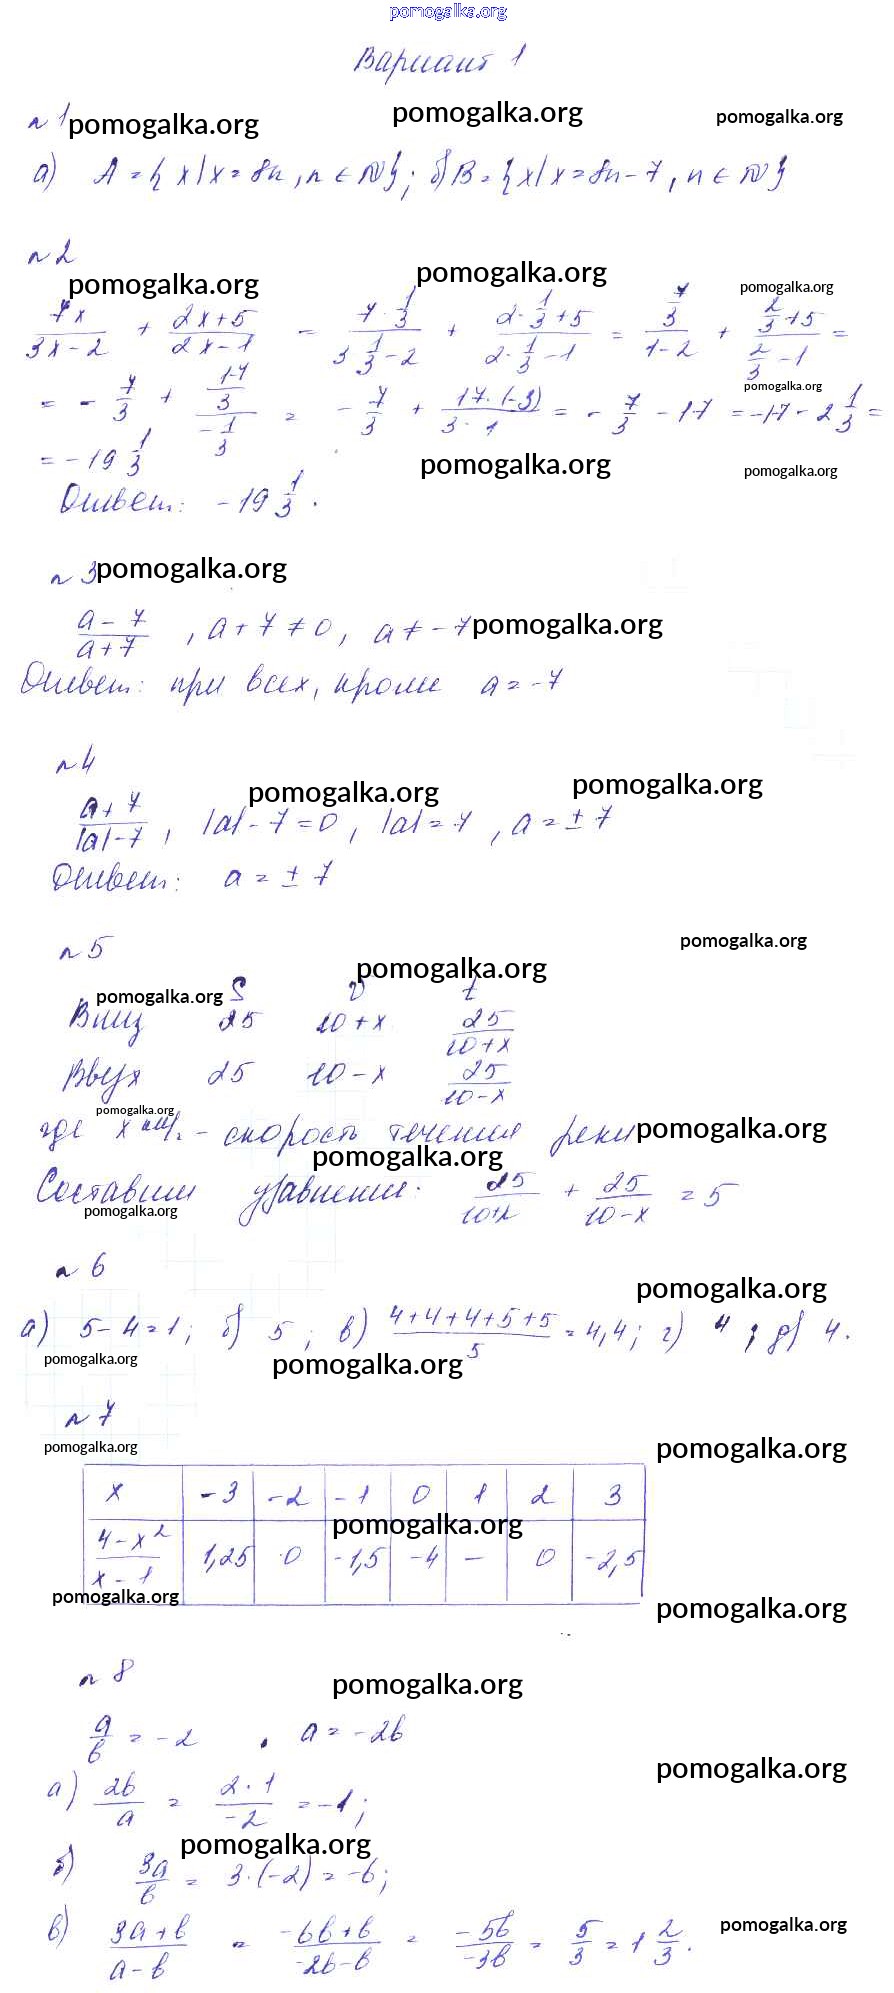 pomogalka.org
Вариант 1
n 1 pomogalka.org pomogalka.org pomogalka.org
а) A = { x | x = 8n, n ∈ N }; б) B = { x | x = 8n - 7, n ∈ N }
n 2
pomogalka.org pomogalka.org pomogalka.org
7x/(3x - 2) + (2x + 5)/(2x - 1) = (7 · 1/3)/(3 1/3 - 2) + (2 · 1/3 + 5)/(2 · 1/3 - 1) = (7/3)/(1 - 2) + (2/3 + 5)/(2/3 - 1) =
pomogalka.org
= - 7/3 + (17/3)/(- 1/3) = - 7/3 + (17 · (-3))/(3 · 1) = - 7/3 - 17 = -17 - 2 1/3 =
= -19 1/3 pomogalka.org pomogalka.org
Ответ: -19 1/3.
n 3 pomogalka.org
(a - 7)/(a + 7), a + 7 ≠ 0, a ≠ -7 pomogalka.org
Ответ: при всех, кроме a = -7
n 4
pomogalka.org pomogalka.org
(a + 7)/(|a| - 7), |a| - 7 = 0, |a| = 7, a = ± 7
Ответ: a = ± 7
n 5 pomogalka.org
pomogalka.org
pomogalka.org S v t
Вниз 25 10 + x 25/(10 + x)
Вверх 25 10 - x 25/(10 - x)
pomogalka.org
где x км/ч - скорость течения реки pomogalka.org
pomogalka.org
Составим уравнение: 25/(10+x) + 25/(10 - x) = 5
pomogalka.org
n 6
pomogalka.org
а) 5 - 4 = 1; б) 5; в) (4 + 4 + 4 + 5 + 5)/5 = 4,4; г) 4; д) 4.
pomogalka.org pomogalka.org
n 7
pomogalka.org pomogalka.org
x -3 -2 -1 0 1 2 3
pomogalka.org
(4 - x²)/(x - 1) 1,25 0 -1,5 -4 — 0 -2,5
pomogalka.org pomogalka.org
n 8 pomogalka.org
a/b = -2, a = -2b
pomogalka.org
а) 2b/a = (2 · 1)/(-2) = -1;
pomogalka.org
б) 3a/b = 3 · (-2) = -6;
pomogalka.org
в) (3a + b)/(a - b) = (-6b + b)/(-2b - b) = (-5b)/(-3b) = 5/3 = 1 2/3.